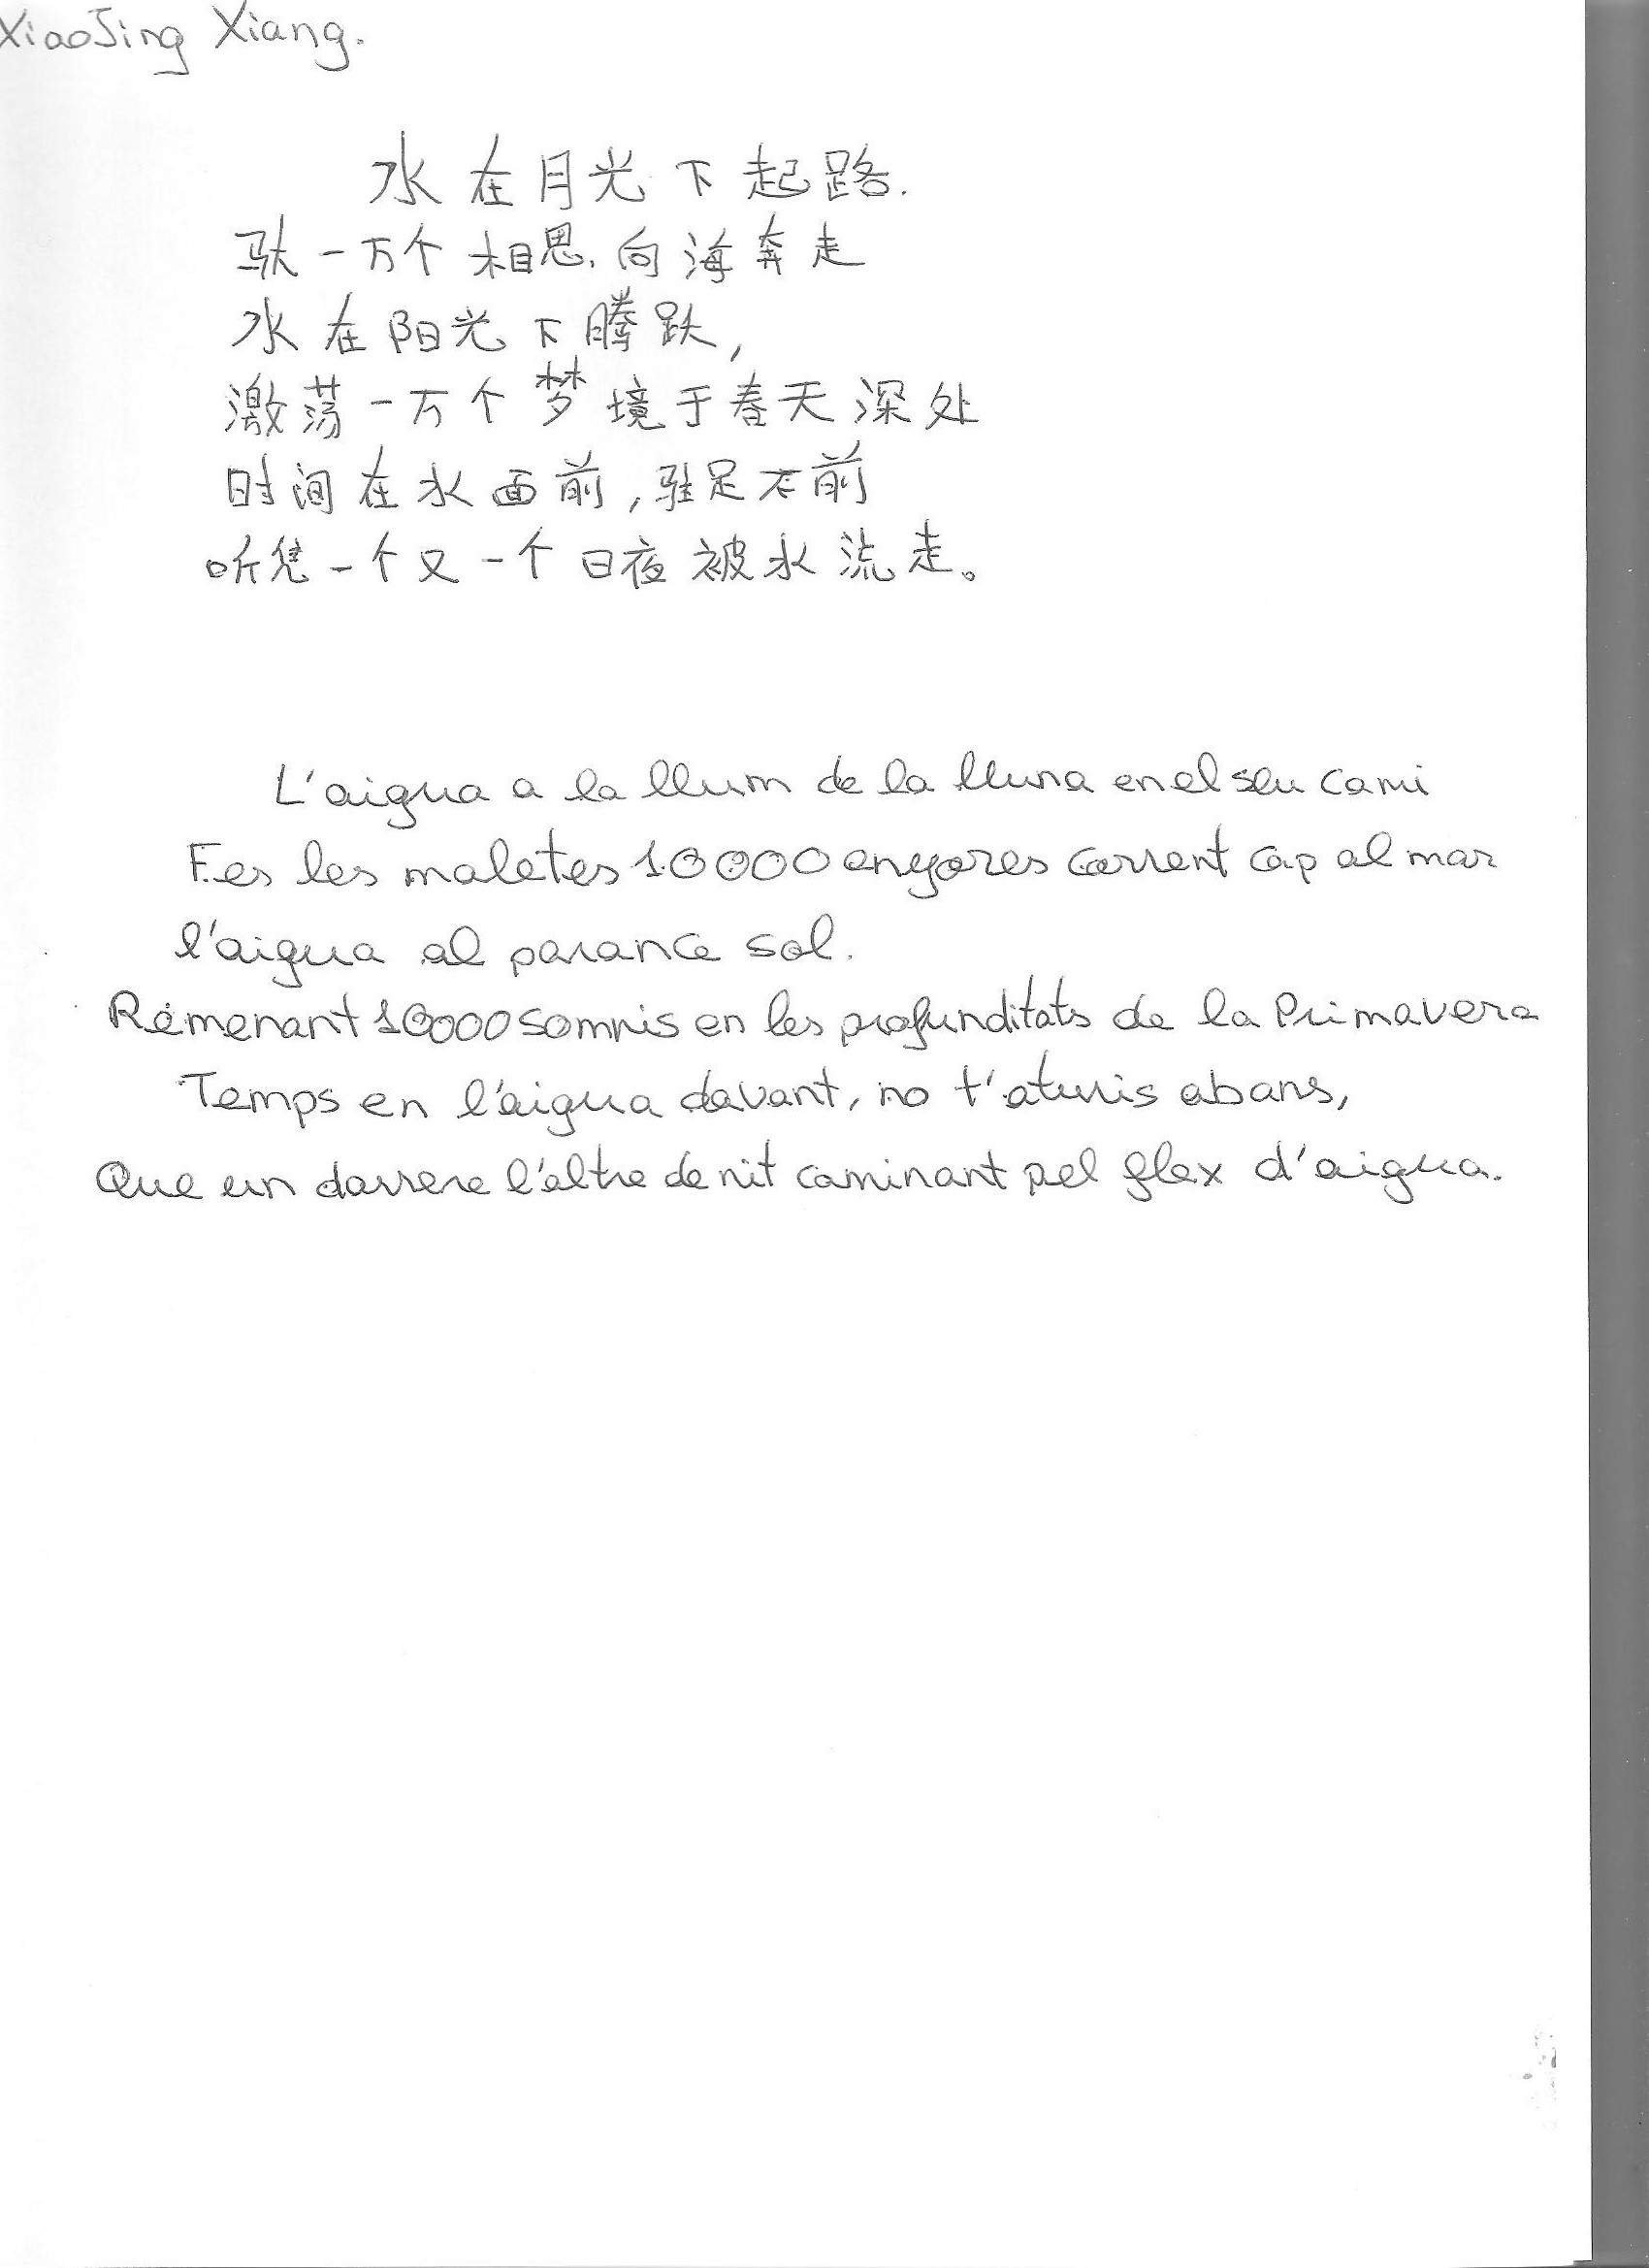 XiaoJing Xiang.
水在月光下起路.
驮一万个相思,向海奔走
水在阳光下腾跃,
激荡一万个梦境于春天深处
时间在水面前,驻足不前
听凭一个又一个日夜被水流走。
L'aigua a la llum de la lluna en el seu cami
Fes les maletes 10000 enyores corrent cap al mar
l'aigua al parance sol.
Remenant 10000 somnis en les profunditats de la Primavera
Temps en l'aigua davant, no t'aturis abans,
Que un darrere l'altre de nit caminant pel flex d'aigua.